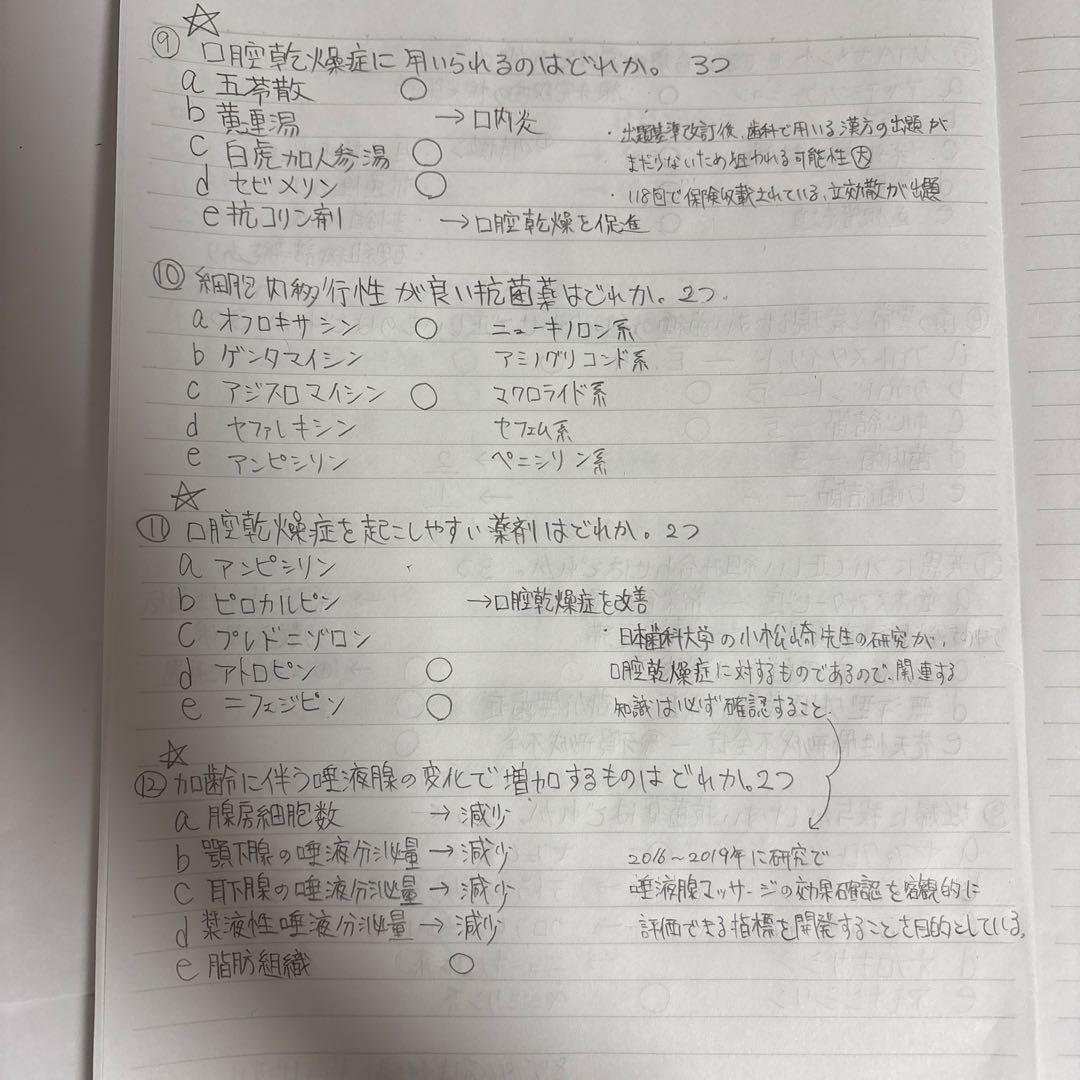 ☆
⑨ 口腔乾燥症に用いられるのはどれか。 3つ
a 五苓散 ○
b 黄連湯 → 口内炎
・出題基準改訂後、歯科で用いる漢方の出題が
c 白虎加人参湯 ○
まだ少ないため狙われる可能性大
d セビメリン ○
・118回で保険収載されている、立効散が出題
e 抗コリン剤 → 口腔乾燥を促進
⑩ 細胞内移行性が良い抗菌薬はどれか。2つ.
a オフロキサシン ○ ニューキノロン系
b ゲンタマイシン アミノグリコシド系
c アジスロマイシン ○ マクロライド系
d セファレキシン セフェム系
e アンピシリン ペニシリン系
☆
⑪ 口腔乾燥症を起こしやすい薬剤はどれか。2つ
a アンピシリン
b ピロカルピン → 口腔乾燥症を改善
c プレドニゾロン ・日本歯科大学の小松崎先生の研究が、
d アトロピン ○ 口腔乾燥症に対するものであるので、関連する
e ニフェジピン ○ 知識は必ず確認すること.
☆
⑫ 加齢に伴う唾液腺の変化で増加するものはどれか。2つ
a 腺房細胞数 → 減少
b 顎下腺の唾液分泌量 → 減少 2016~2019年に研究で
c 耳下腺の唾液分泌量 → 減少 唾液腺マッサージの効果確認を客観的に
d 漿液性唾液分泌量 → 減少 評価できる指標を開発することを目的としている。
e 脂肪組織 ○